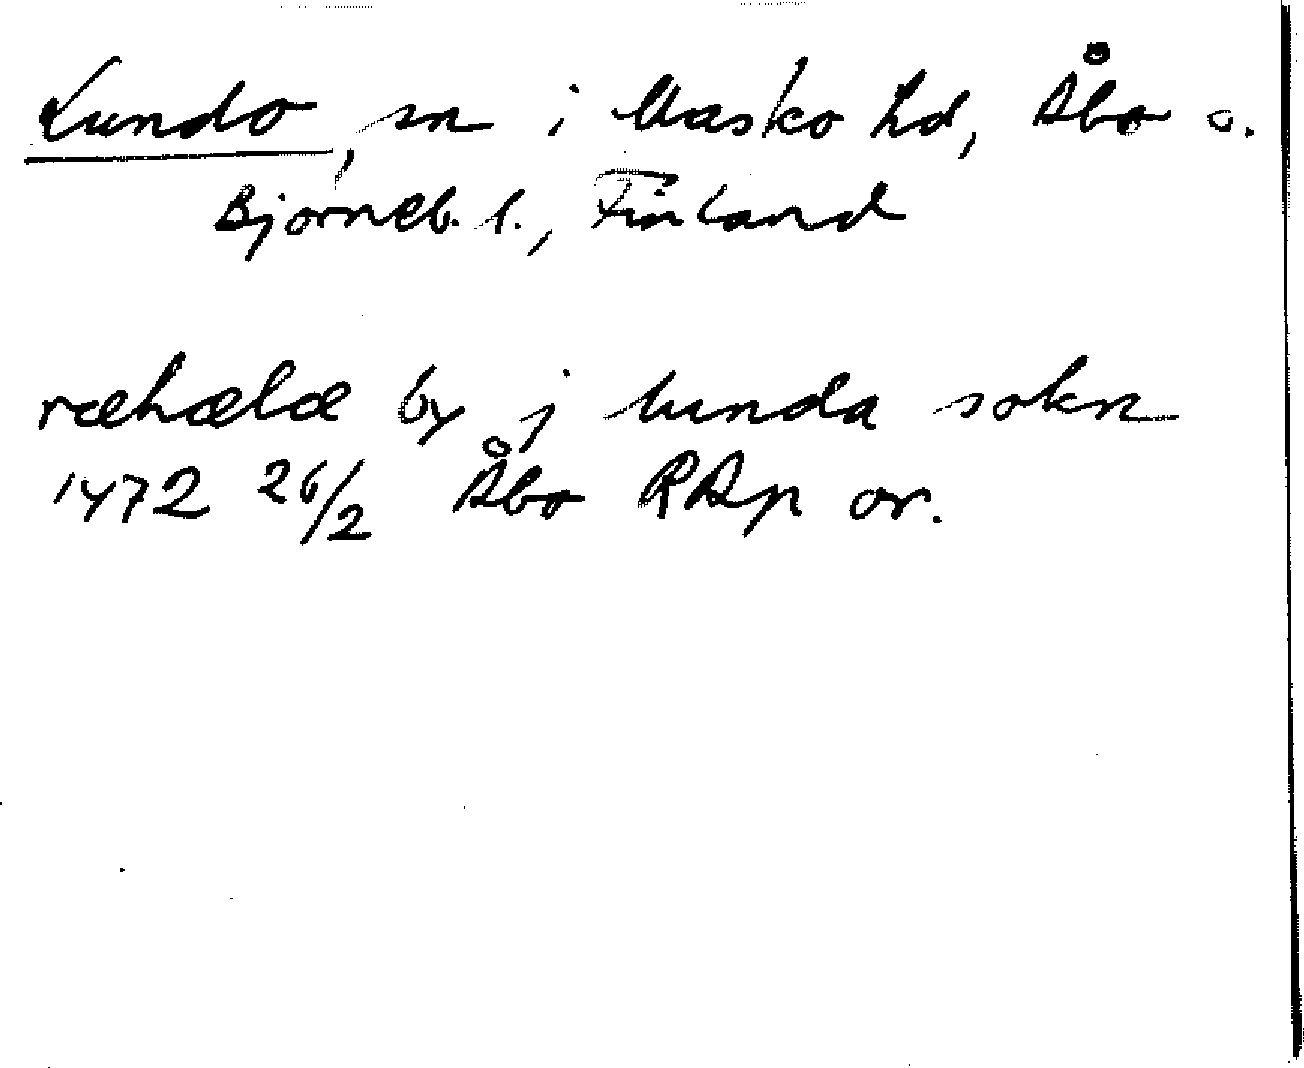 Lundo, sn i Masko hd, Åbo o.
Björneb. l., Finland
ræhælæ by j lunda sokn
1472 26/2 Åbo RAp or.